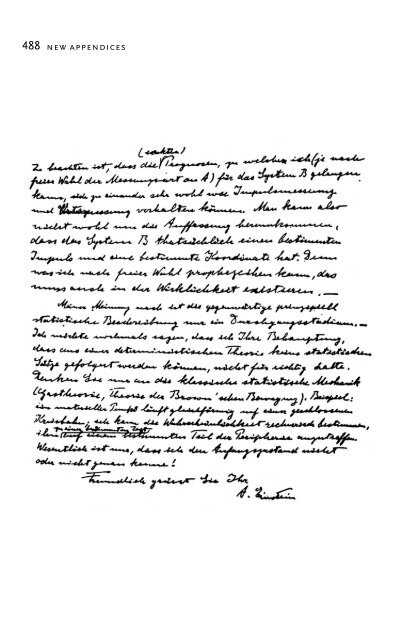 488 NEW APPENDICES
(exakten)
Zu beachten ist, dass die Prognosen, zu welchen ich (je nach
freier Wahl der Messungsart an A) für das System B gelangen
kann, sich zu einander sehr wohl wie Impulsmessung
und verhalten können. Man kann also
nicht wohl um die Auffassung herumkommen,
dass das System B thatsächlich einen bestimmten
Impuls und eine bestimmte Koordinate hat. Denn
was ich nach freier Wahl prophezeihen kann, das
muss auch in der Wirklichkeit existieren. —
Meiner Meinung nach ist die gegenwärtige prinzipiell
statistische Beschreibung nur ein Durchgangsstadium. —
Ich möchte nochmals sagen, dass ich Ihre Behauptung,
dass aus einer deterministischen Theorie keine statistischen
Sätze gefolgert werden können, nicht für richtig halte.
Denken Sie nur an die klassische statistische Mechanik
(Gastheorie, Theorie der Brown'schen Bewegung). Beispiel:
ein materieller Punkt läuft gleichförmig auf einer geschlossenen
Kreisbahn; ich kann die Wahrscheinlichkeit rechnerisch bestimmen,
zu einer bestimmten Zeit
ihn auf einem bestimmten Teil der Peripherie anzutreffen.
Wesentlich ist nur, dass ich den Anfangszustand nicht
oder nicht genau kenne!
Freundlich grüsst Sie Ihr
A. Einstein